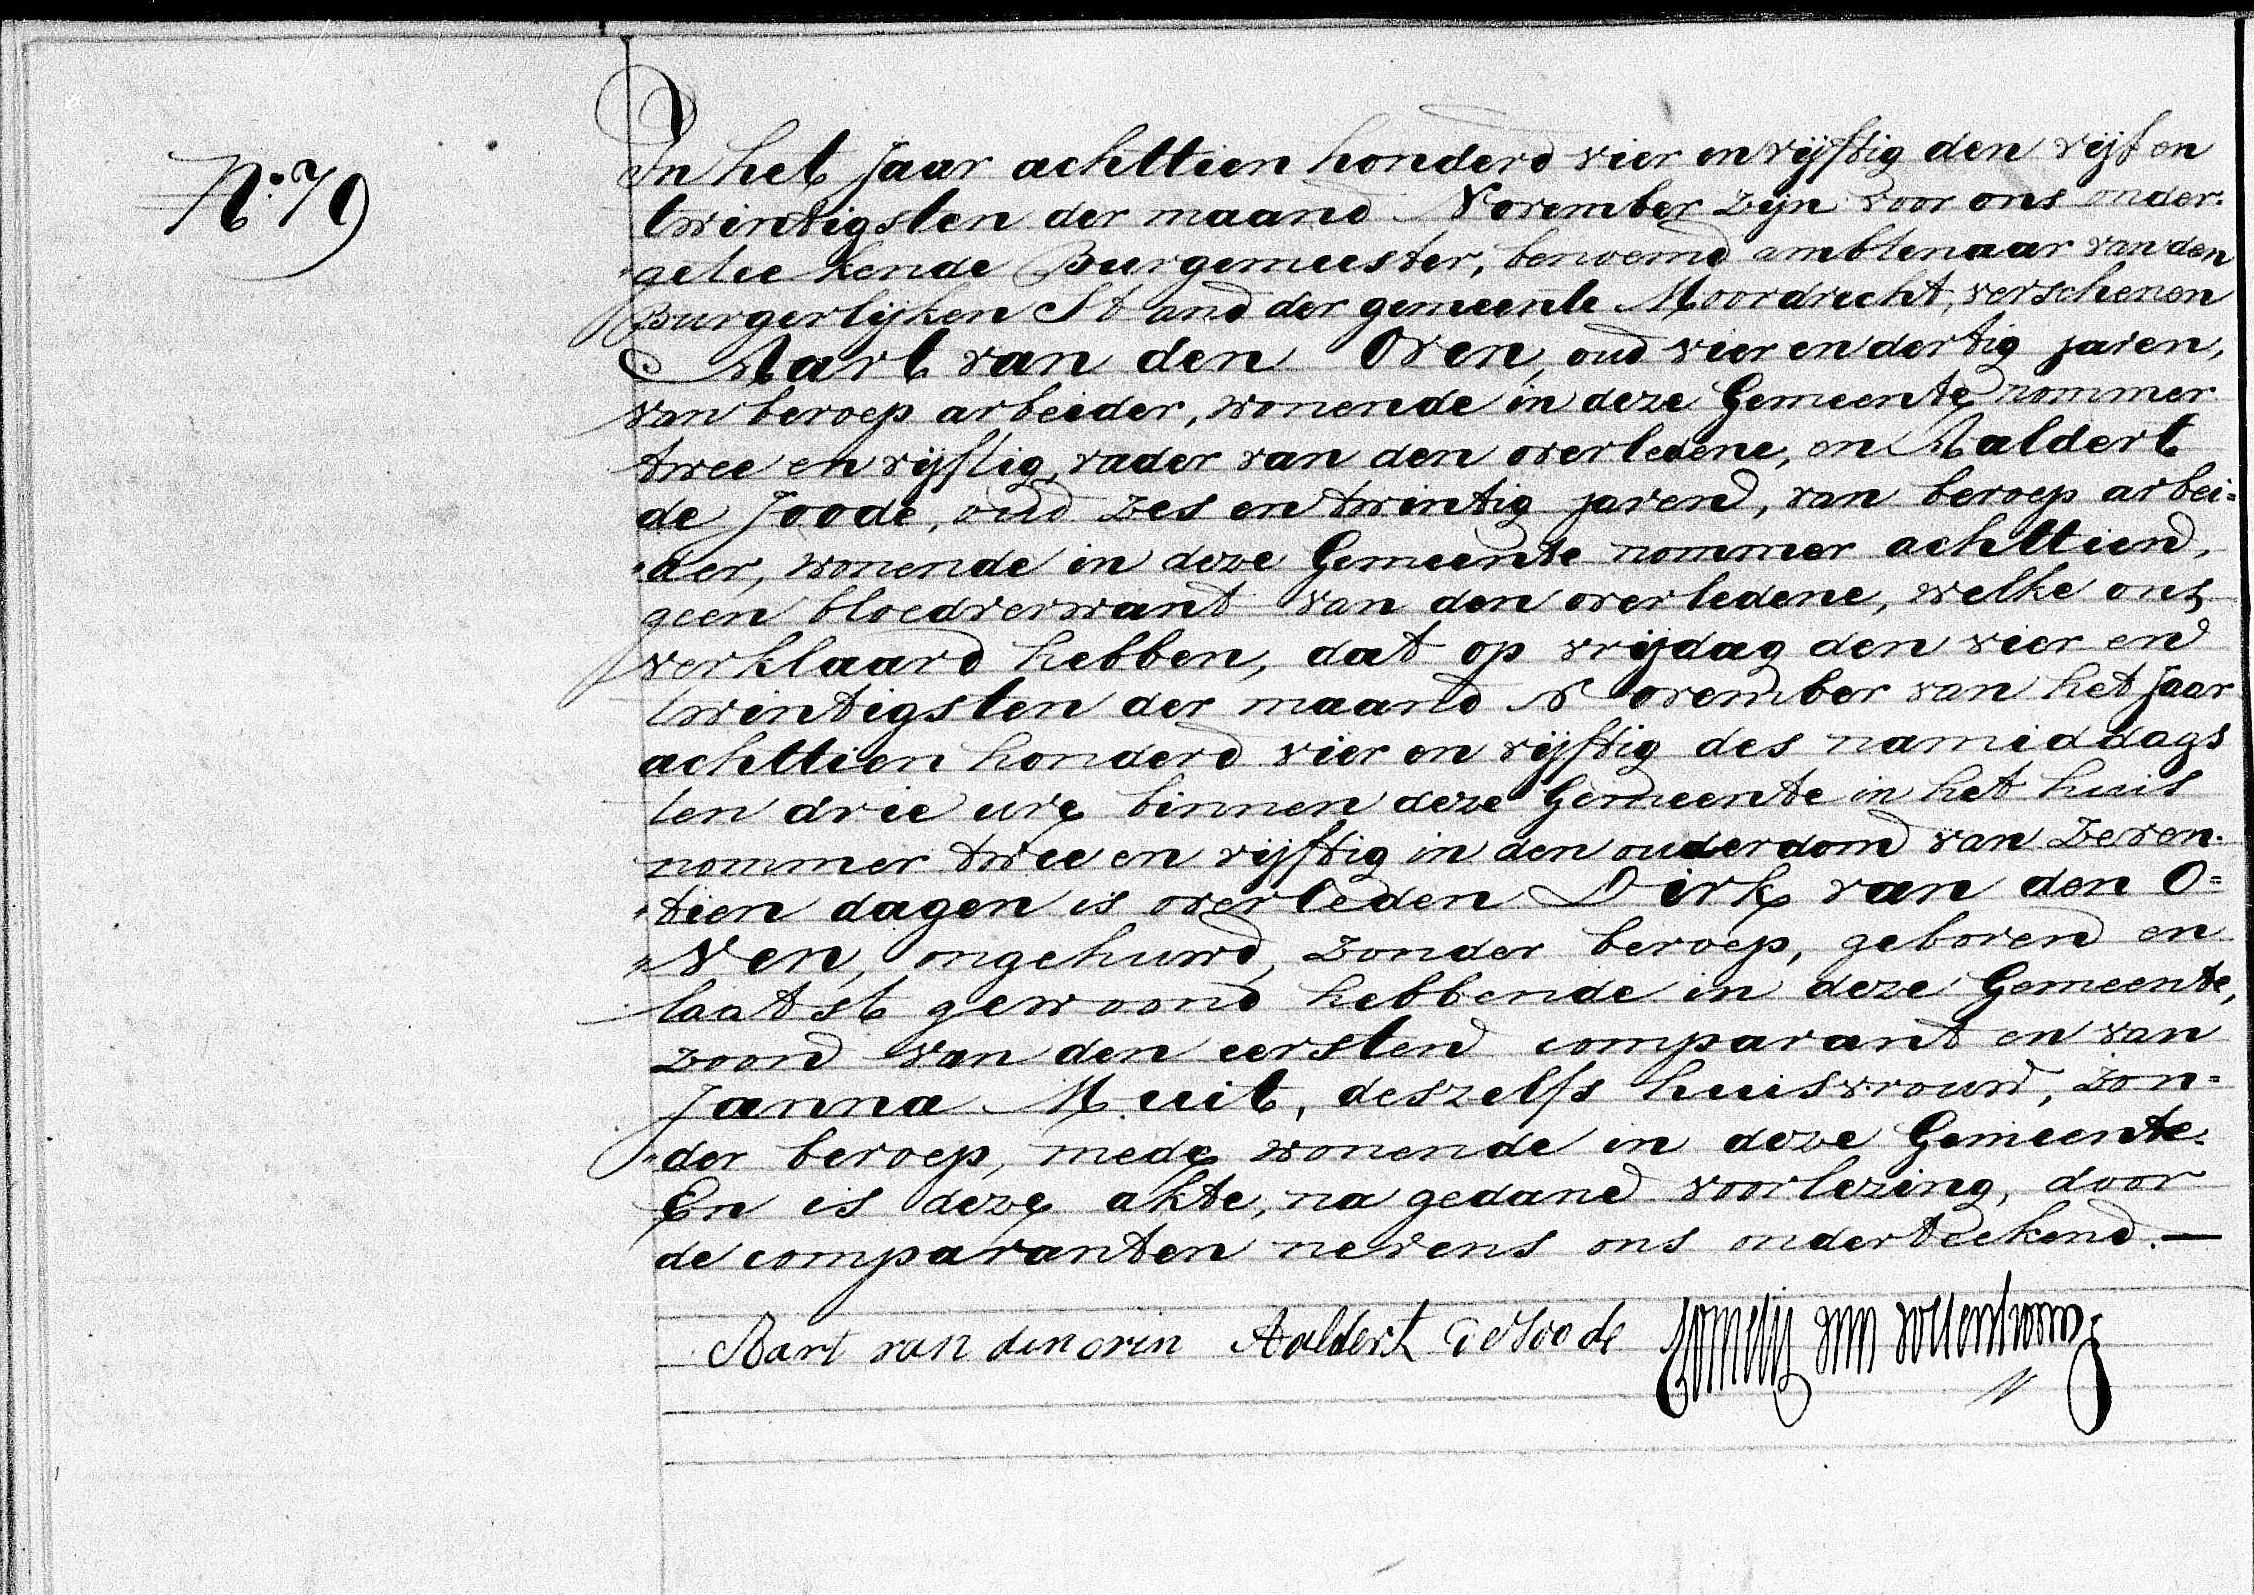 N:o 79
In het Jaar achttien honderd vier en vijftig den vijf en
twintigsten der maand November zijn voor ons onder=
"geteekende Burgemeester, benoemd ambtenaar van den
Burgerlijken Stand der gemeente Moordrecht, verschenen
Aart van den Oven, oud vier en dertig jaren,
van beroep arbeider, wonende in deze Gemeente nommer
twee en vijftig, vader van den overledene, en Aaldert
de Joode, oud zes en twintig jaren, van beroep arbei=
"der, wonende in deze Gemeente nommer achttien,
geen bloedverwant van den overledene, welke ons
verklaard hebben, dat op vrijdag den vier en
twintigsten der maand November van het Jaar
achttien honderd vier en vijftig des namiddags
ten drie ure binnen deze Gemeente in het huis
nommer twee en vijftig in den ouderdom van zeven=
"tien dagen is overleden Dirk van den O=
"ven, ongehuwd, zonder beroep, geboren en
laatst gewoond hebbende in deze Gemeente,
zoon van den eersten comparant en van
Janna Muit, deszelfs huisvrouw, zon=
"der beroep, mede wonende in deze Gemeente.
En is deze akte, na gedane voorlezing, door
de comparanten nevens ons onderteekend. —
Aart van den ovin Aaldert de Joode